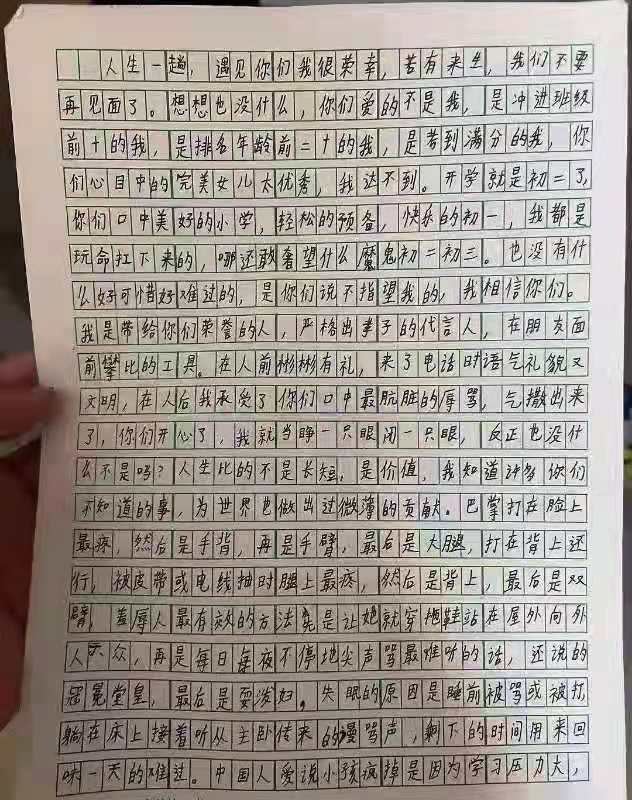 人生一趟，遇见你们我很荣幸，若有来生，我们不要
再见面了。想想也没什么，你们爱的不是我，是冲进班级
前十的我，是排名年龄前二十的我，是考到满分的我，你
们心目中的完美女儿太优秀，我达不到。开学就是初二了，
你们口中美好的小学，轻松的预备，快乐的初一，我都是
玩命扛下来的，哪还敢奢望什么魔鬼初二初三。也没有什
么好可惜好难过的，是你们说不指望我的，我相信你们。
我是带给你们荣誉的人，严格出孝子的代言人，在朋友面
前攀比的工具。在人前彬彬有礼，来了电话时语气礼貌又
文明，在人后我承受了你们口中最肮脏的辱骂，气撒出来
了，你们开心了，我就当睁一只眼闭一只眼，反正也没什
么不是吗？人生比的不是长短，是价值，我知道许多你们
不知道的事，为世界也做出过微薄的贡献。巴掌打在脸上
最疼，然后是手背，再是手臂，最后是大腿，打在背上还
行，被皮带或电线抽时腿上最疼，然后是背上，最后是双
臂，羞辱人最有效的方法是让她就穿拖鞋站在屋外向外
人示众，再是每日每夜不停地尖声骂最难听的话，还说的
冠冕堂皇，最后是耍泼妇。失眠的原因是睡前被骂或被打，
躺在床上接着听从主卧传来的谩骂声，剩下的时间用来回
味一天的难过。中国人爱说小孩疯掉是因为学习压力大，